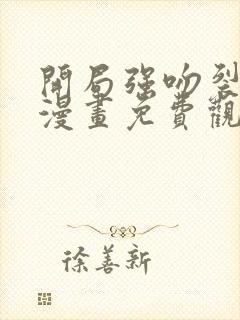 開局强吻裂
漫畫免費觀
徐善新